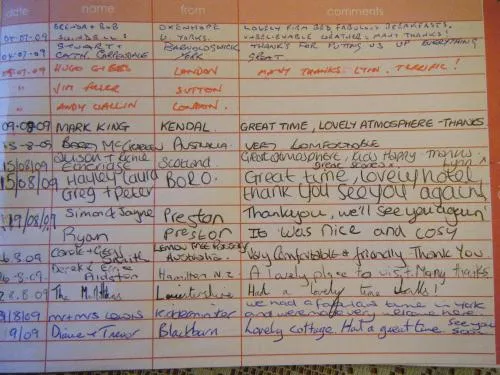 date name from comments
BRENDA + BOB OXENHOPE LOVELY FIRM BED, FABULOUS BREAKFASTS.
W. YORKS. UNBELIEVABLE WEATHER, MANY THANKS!
STUART + BARNOLDSWICK THANKS FOR PUTTING US UP EVERYTHING
04.07.09 CATH. CARPENDALE YORK GREAT
HUGO GIBBS LONDON MANY THANKS LYNN. TERRIFIC!
" JIM SUTTON
" ANDY WALLIN LONDON.
09-08-09 MARK KING KENDAL. GREAT TIME, LOVELY ATMOSPHERE - THANKS
-8-09 AUSTRALIA. VERY COMFORTABLE
15/08/09 Scotland Great atmosphere, kids Happy Thanks
15/08/09 Hayley Laura BORO. Great time lovely hotel
Greg + Peter thank you see you again
19/08/09 Simon & Jayne Preston Thankyou, we'll see you again
Ryan Preston It was nice and cosy
8.09 Carole + Smith Australia. Very Comfortable & friendly Thank You
-8-09 Derek & Hamilton N.Z A lovely place to visit Many thanks
8.8.09 The Leicestershire Had a lovely time
/8/09 mr + mrs Lewis Kidderminster we had a fabulous time in York
and were made very welcome here
/9/09 Diane & Trevor Blackburn Lovely cottage. Had a great time see you
soon